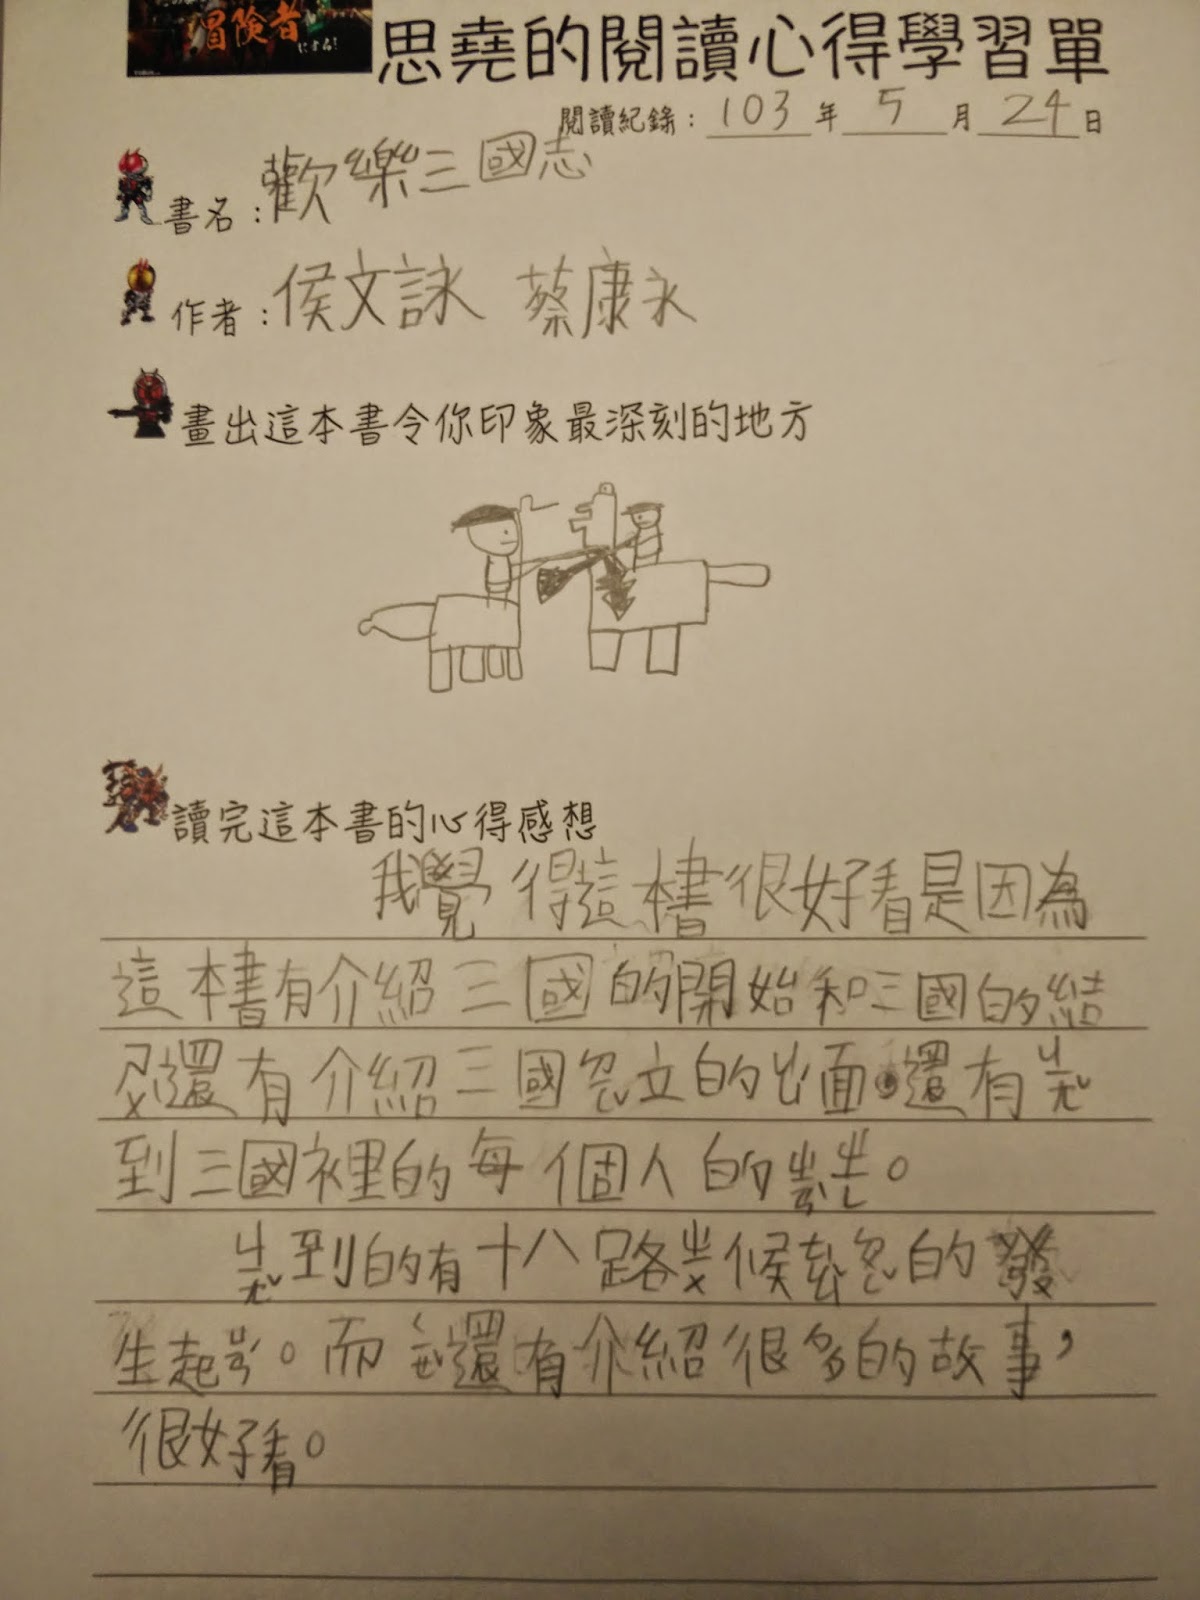 冒険者
になる!
思堯的閱讀心得學習單
閱讀紀錄：103年5月24日
書名：歡樂三國志
作者：侯文詠 蔡康永
畫出這本書令你印象最深刻的地方
讀完這本書的心得感想
我覺得這本書很好看是因為
這本書有介紹三國的開始和三國的結
還有介紹三國ㄉㄧㄥˇ立的出面。還有ㄐㄧㄤˇ
到三國裡的每個人的
ㄐㄧㄤˇ到的有十八路ㄓㄨ候ㄊㄠˇ的發
生起。而ㄑㄧㄝˇ還有介紹很多的故事，
很好看。